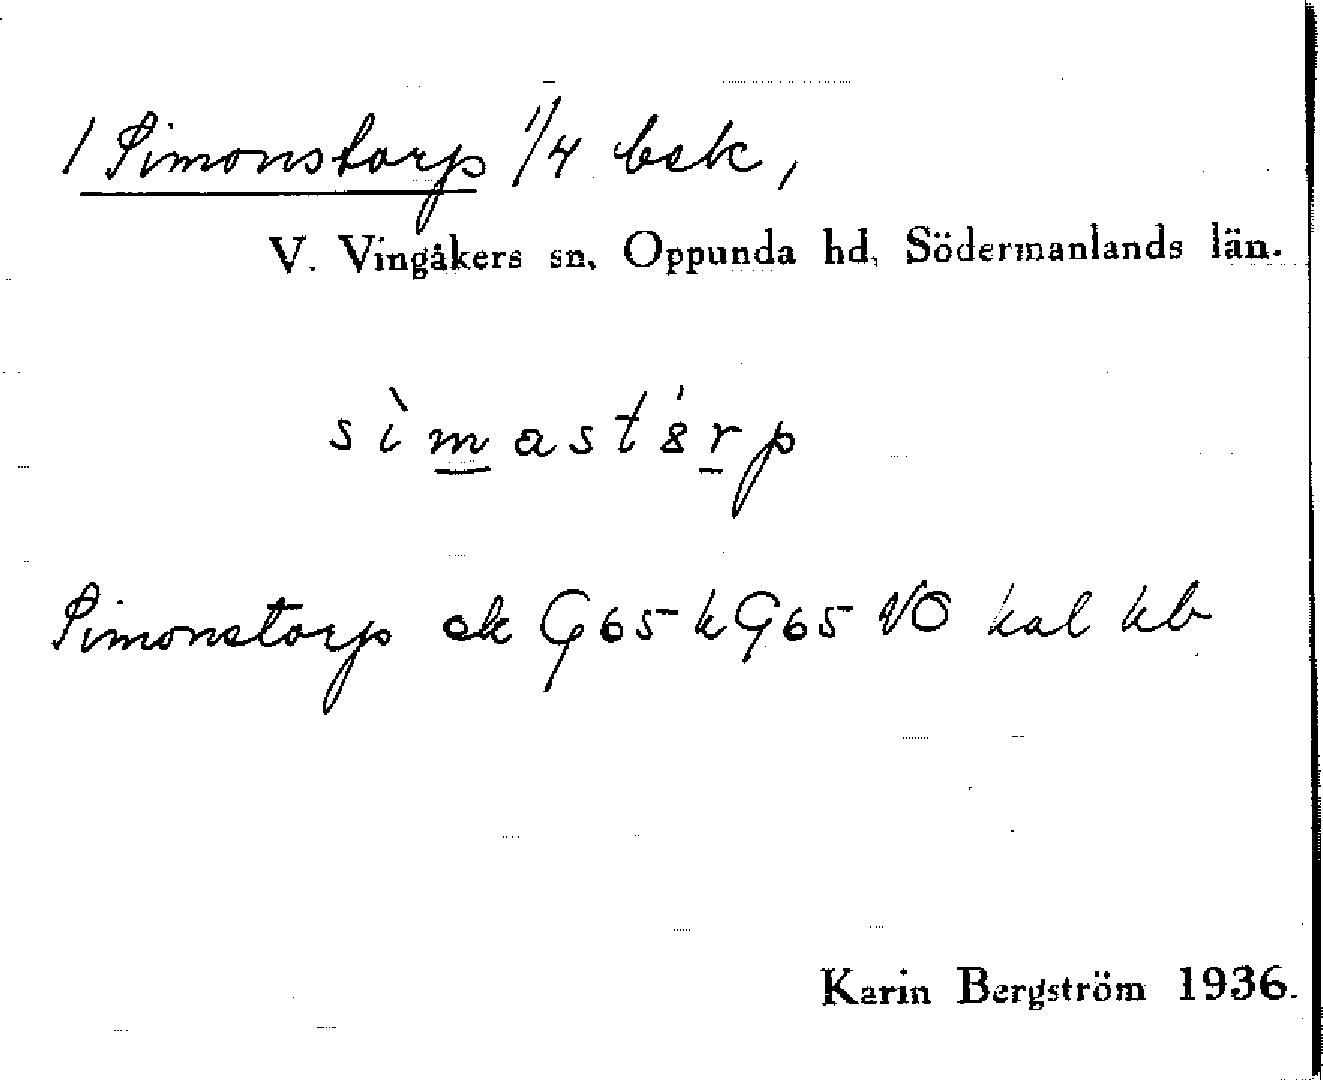 1 Simonstorp 1/4 bek,
V. Vingåkers sn, Oppunda hd, Södermanlands län.
sìmast8́rp
Simonstorp ek G65 k G65 VO kal kb
Karin Bergström 1936.